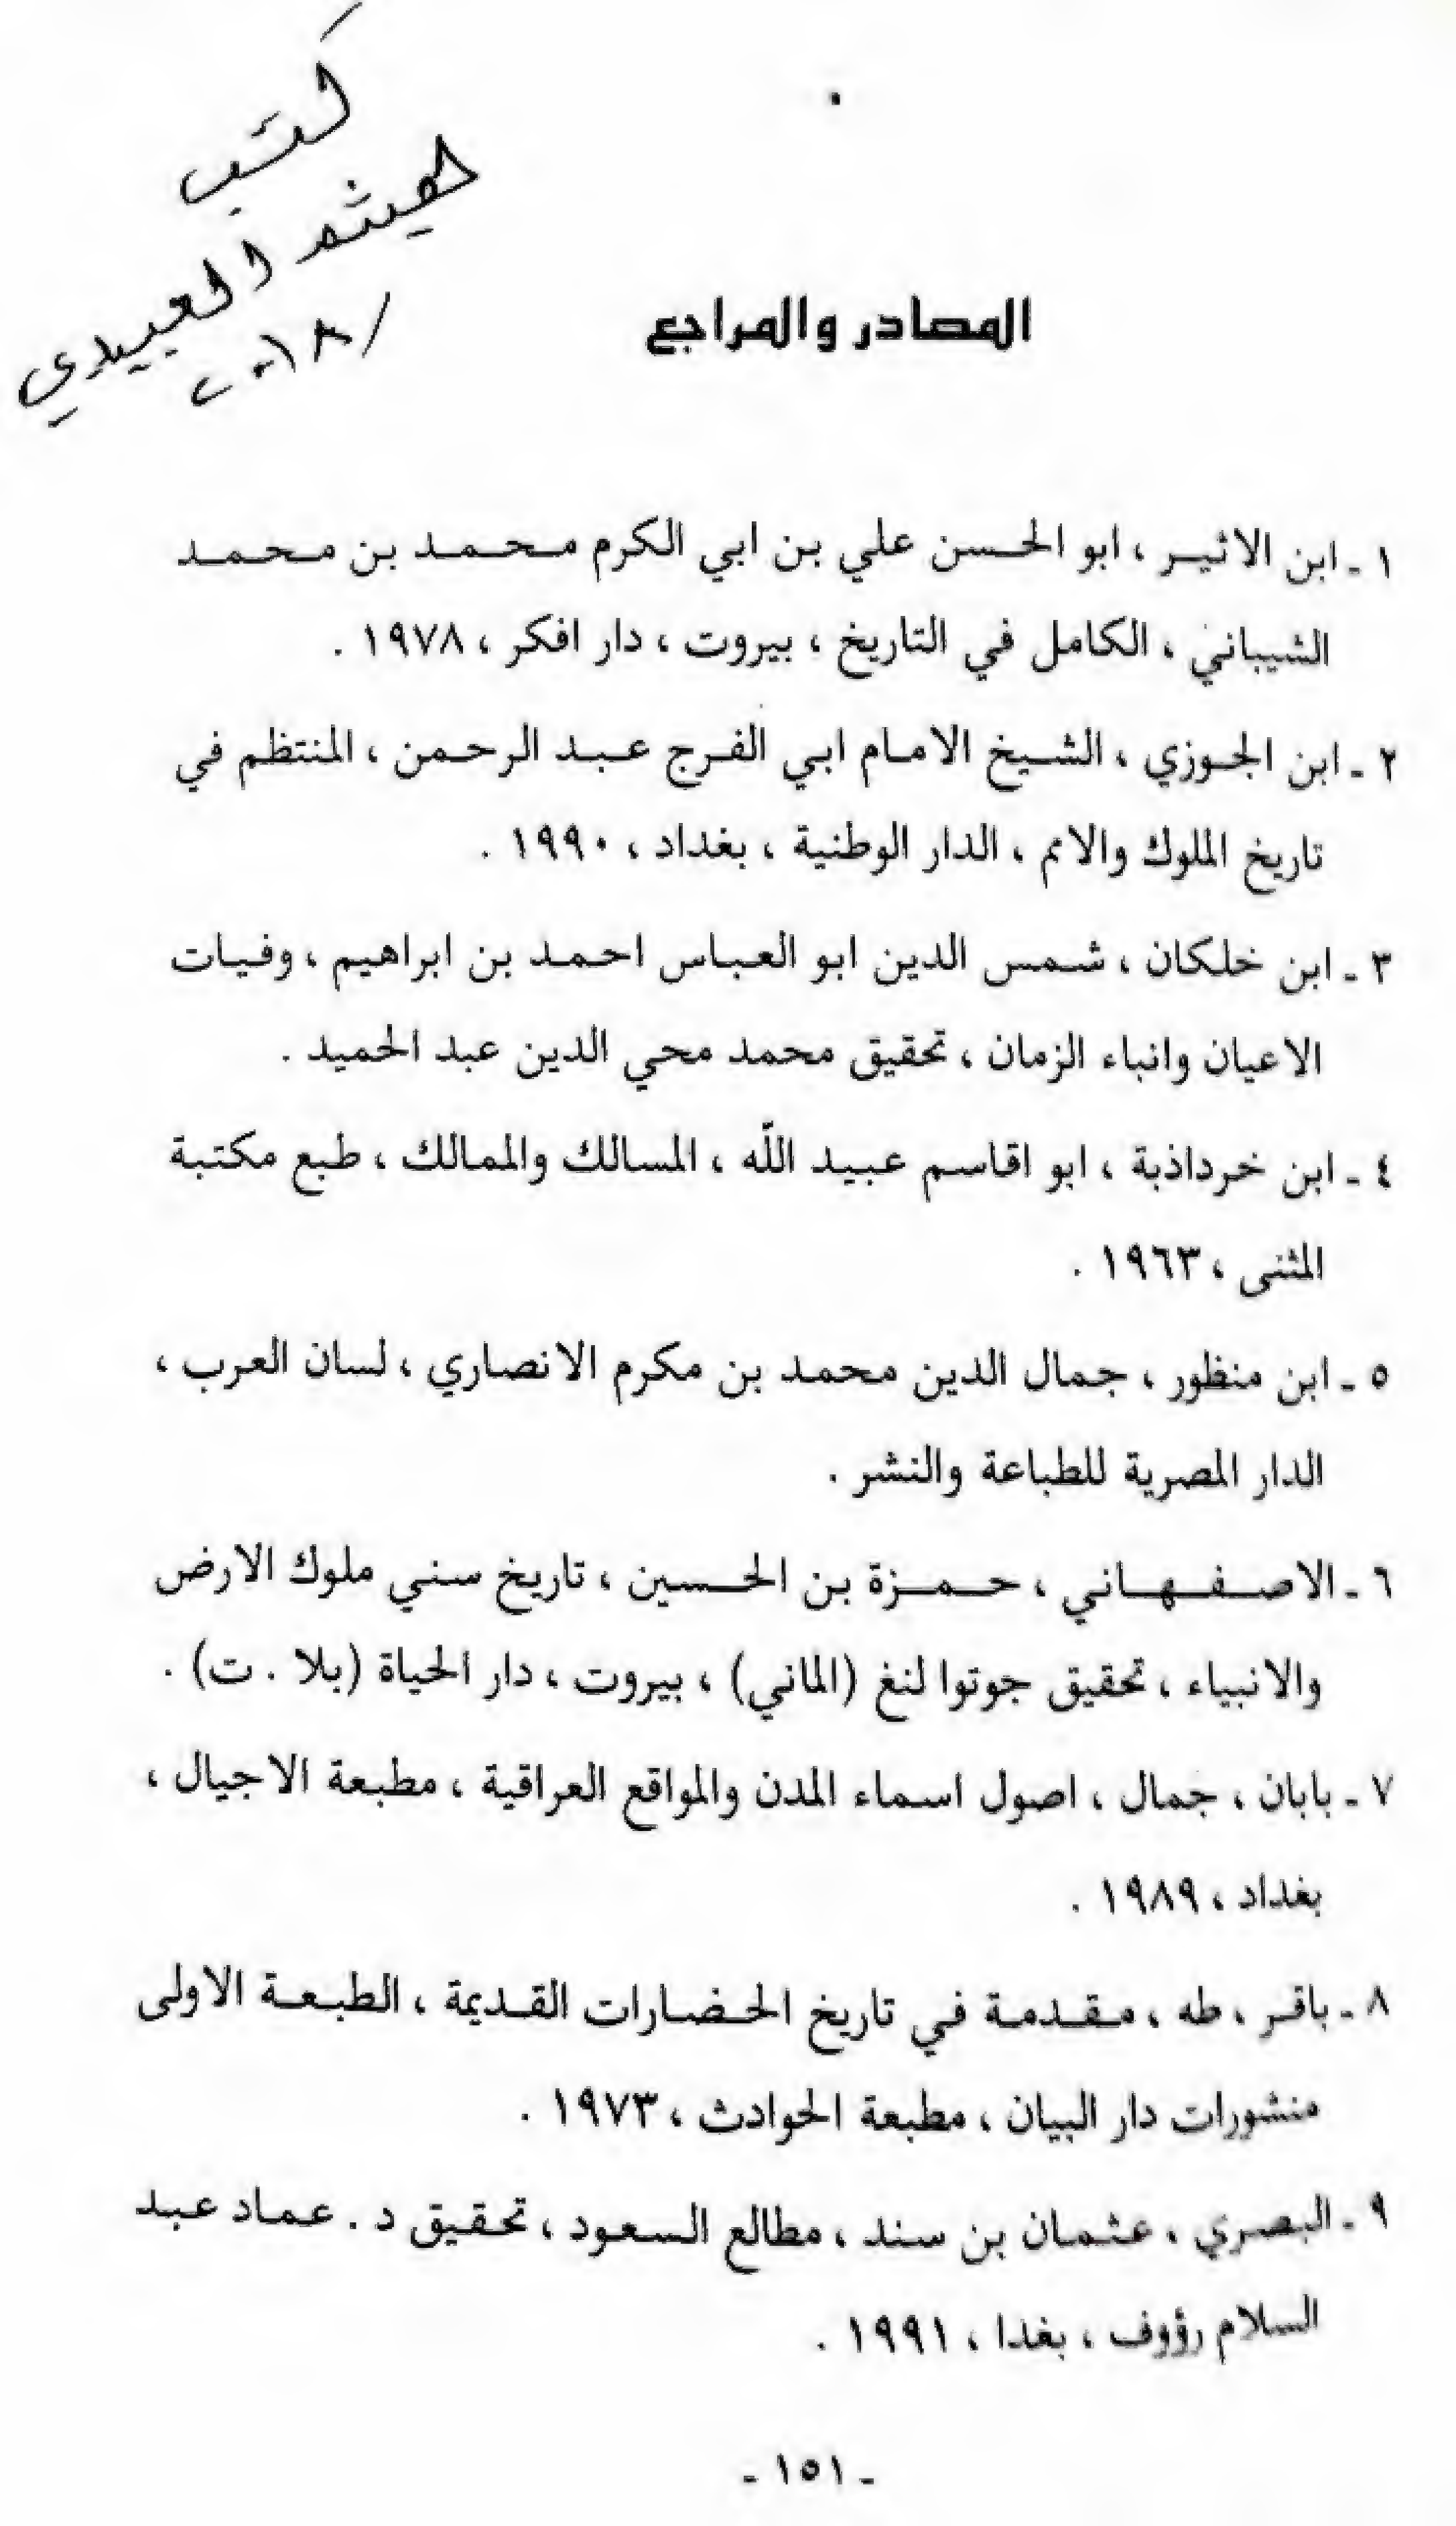 كتب
هيثم العبيدي
المصادر والمراجع
١ ـ ابن الاثير ، ابو الحسن علي بن ابي الكرم محمد بن محمد
الشيباني ، الكامل في التاريخ ، بيروت ، دار افكر ، ١٩٧٨ .
٢ ـ ابن الجوزي ، الشيخ الامام ابي الفرج عبد الرحمن ، المنتظم في
تاريخ الملوك والامم ، الدار الوطنية ، بغداد ، ١٩٩٠ .
٣ ـ ابن خلكان ، شمس الدين ابو العباس احمد بن ابراهيم ، وفيات
الاعيان وانباء الزمان ، تحقيق محمد محي الدين عبد الحميد .
٤ ـ ابن خرداذبة ، ابو اقاسم عبيد اللّه ، المسالك والممالك ، طبع مكتبة
المثنى ، ١٩٦٣ .
٥ ـ ابن منظور ، جمال الدين محمد بن مكرم الانصاري ، لسان العرب ،
الدار المصرية للطباعة والنشر .
٦ ـ الاصفهاني ، حمزة بن الحسين ، تاريخ سني ملوك الارض
والانبياء ، تحقيق جوتوا لنغ (الماني) ، بيروت ، دار الحياة (بلا . ت) .
٧ ـ بابان ، جمال ، اصول اسماء المدن والمواقع العراقية ، مطبعة الاجيال ،
بغداد ، ١٩٨٩ .
٨ ـ باقر ، طه ، مقدمة في تاريخ الحضارات القديمة ، الطبعة الاولى
منشورات دار البيان ، مطبعة الحوادث ، ١٩٧٣ .
٩ ـ البصري ، عثمان بن سند ، مطالع السعود ، تحقيق د . عماد عبد
السلام رؤوف ، بغدا ، ١٩٩١ .
ـ ١٥١ ـ